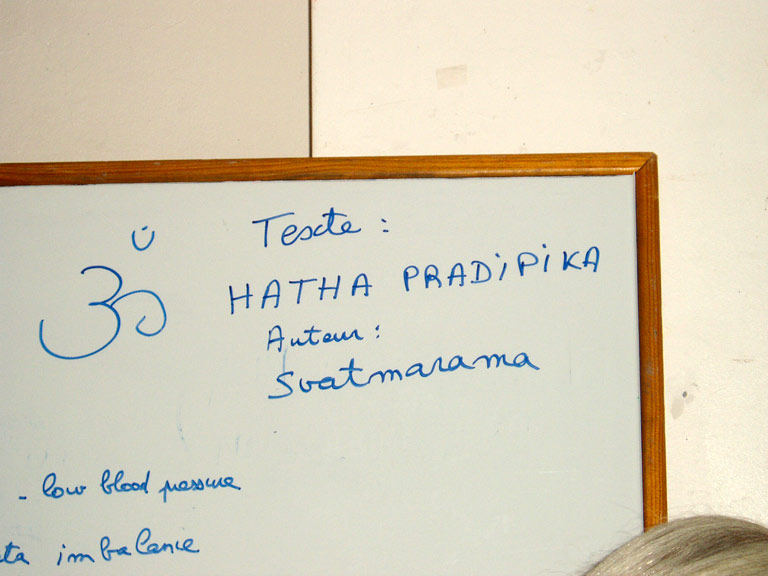 ॐ
Texte :
HATHA PRADiPiKA
Auteur :
Svatmarama
- low blood pressure
imbalance